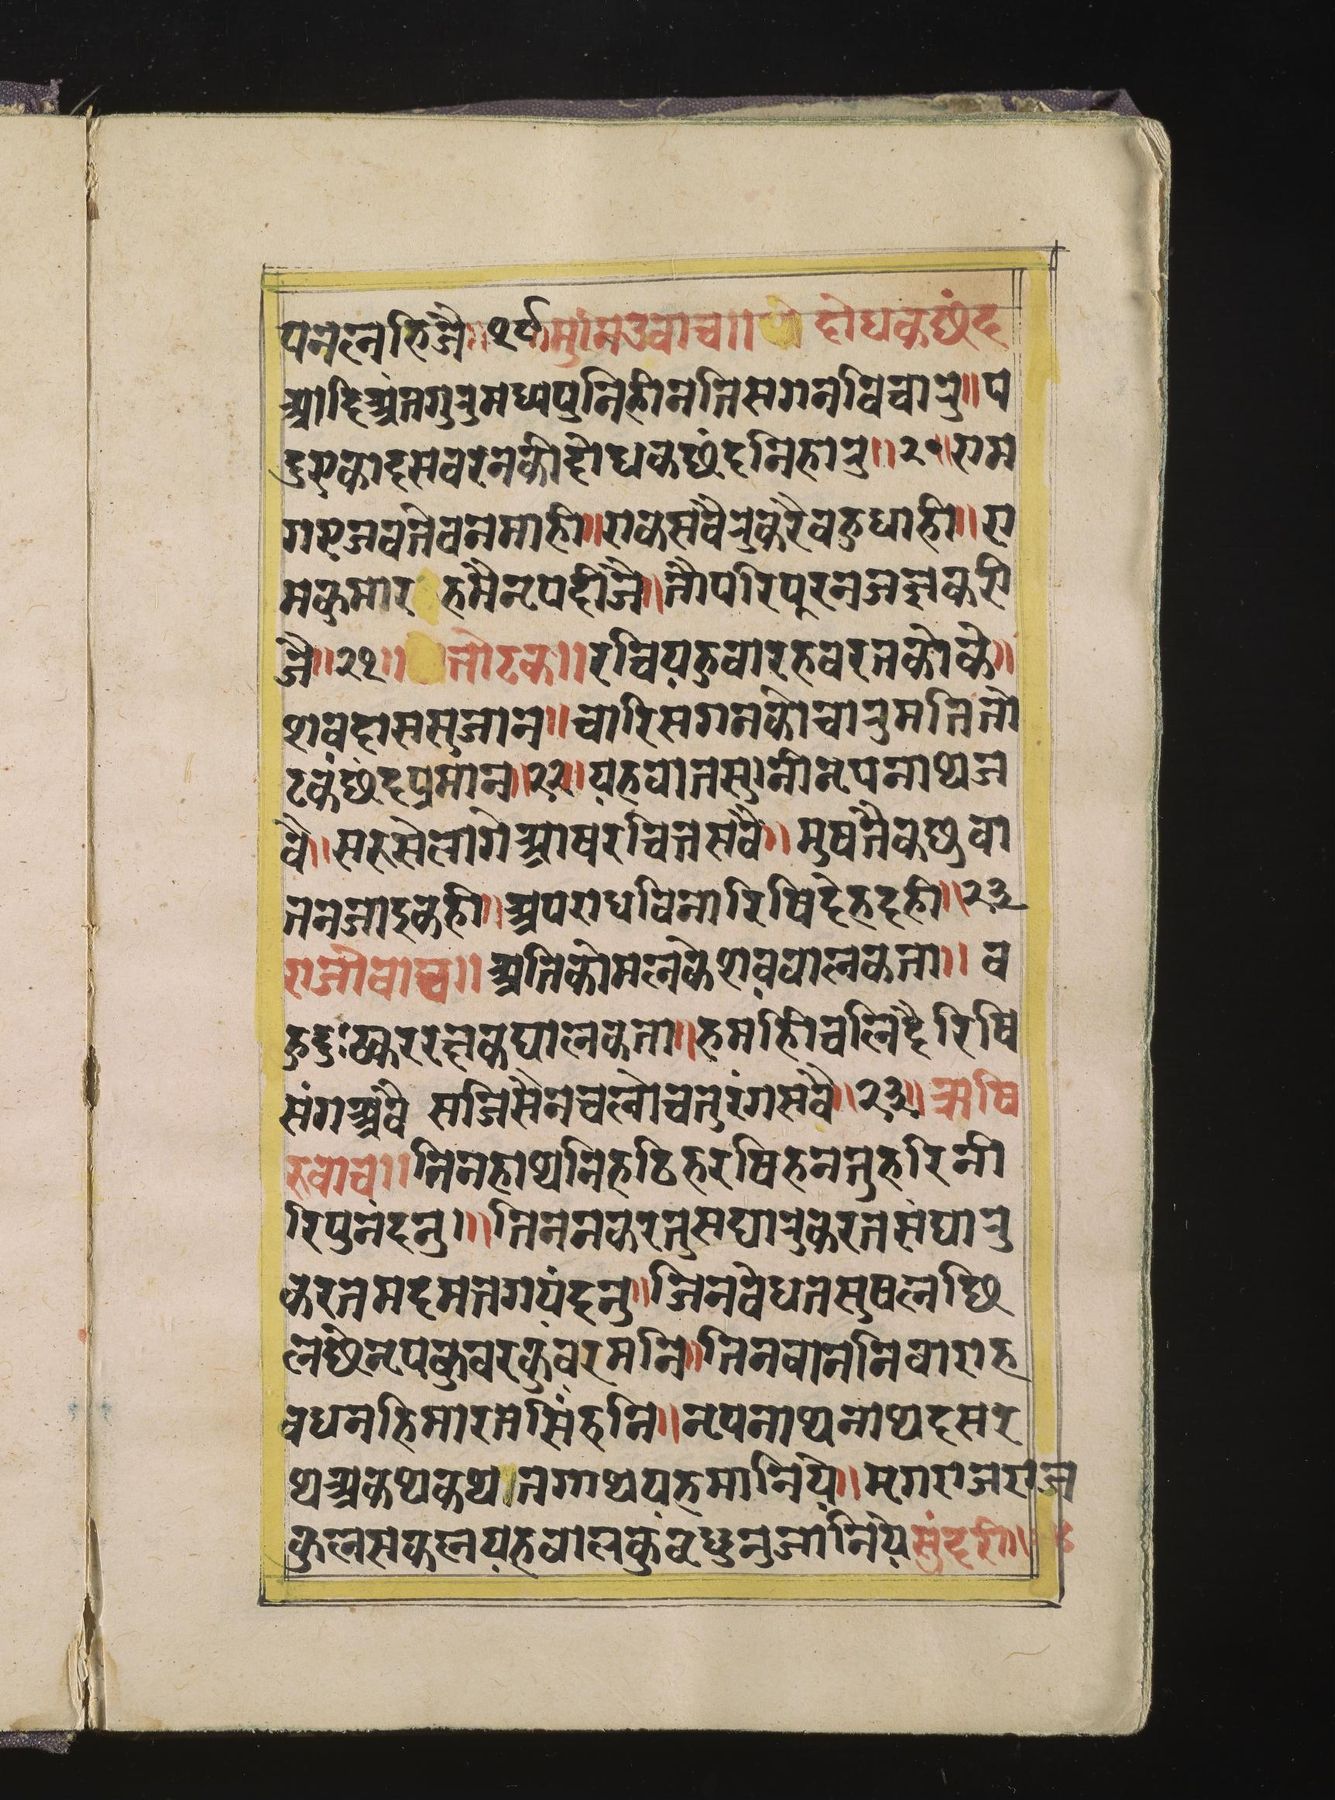 पनलनहिजै॥१९॥मुनिमउवाच॥ दोधकछंद
आदिअंतगुरुमध्यपुनिहीनतिसगनविचारु॥प
दुएकादसवरनकौदोधकछंदनिहारु॥२०॥राम
गएजवतेवनमाही॥राकसवैरुकरैवहुधाही॥रा
मकुमार हमैनृपदीजै॥तौपरिपूरनजज्ञकरी
जै॥२१॥ तोटक॥रचियहुवारहवरनकोके॥
शवदाससुजान॥चारिसगनकोचारुमतितो
टकछंदप्रमान॥२२॥यहवातसुनीनृपनाथज
वै॥सरसेलागेआषरचितसवै॥मुषतैकछुवा
तनजाइकही॥अपराधविनारिषिदेहदही॥२३
राजोवाच॥अतिकोमलकेशववालकता॥व
हुदुःकररक्षकघालकता॥हमहीचलिहैरिषि
संगअवै सजिसैनचलौचतुरंगसवै॥२३॥ऋषि
रुवाच॥जिनहाथनिहठिहरषिहनतुहरिनी
रिपुनंदनु॥जिननकरतुसघारुकरतसंघारु
करतमदमतगयंदनु॥जिनवेधतसुषलछि
लछैनृपकुवरकुंवरमनि॥तिनवाननिवाराह
वधनहिमारतसिंहनि॥नृपनाथनाथदसर
थअकथकथ नगाथयहमानिये॥मृगराजराज
कुलसकलयहवालकुंवधुनुजांनिये सुंदरी॥२४